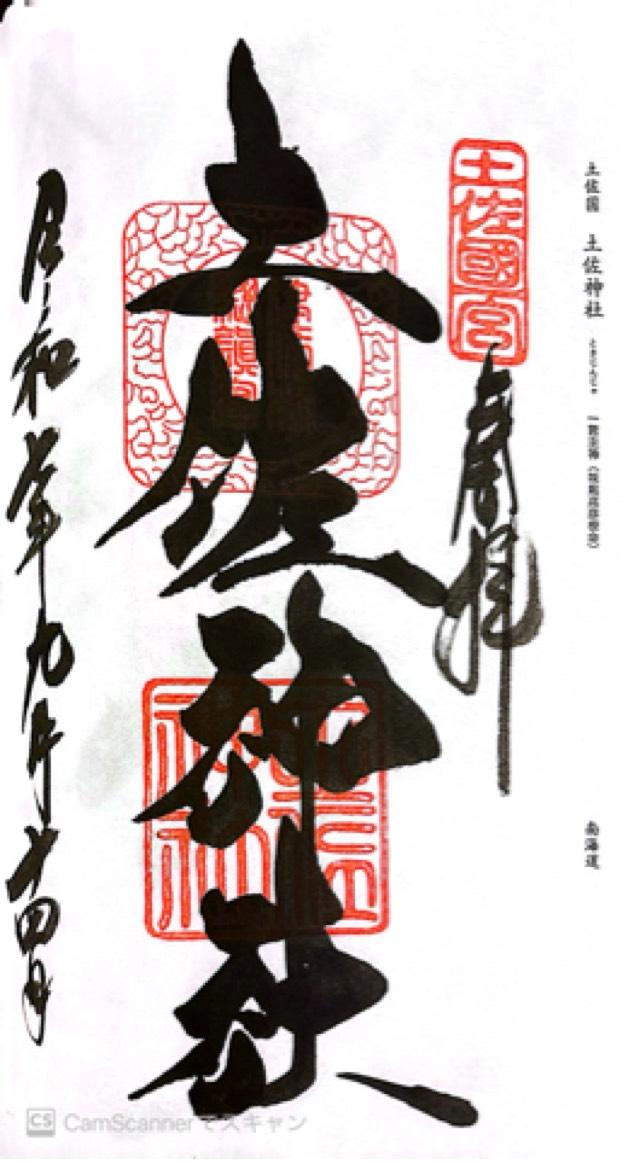 土佐国 土佐神社 とさじんじゃ 一言主神
南海道
土佐國一宮
奉拝
土佐神社
令和七年九月十四日
CS CamScannerでスキャン